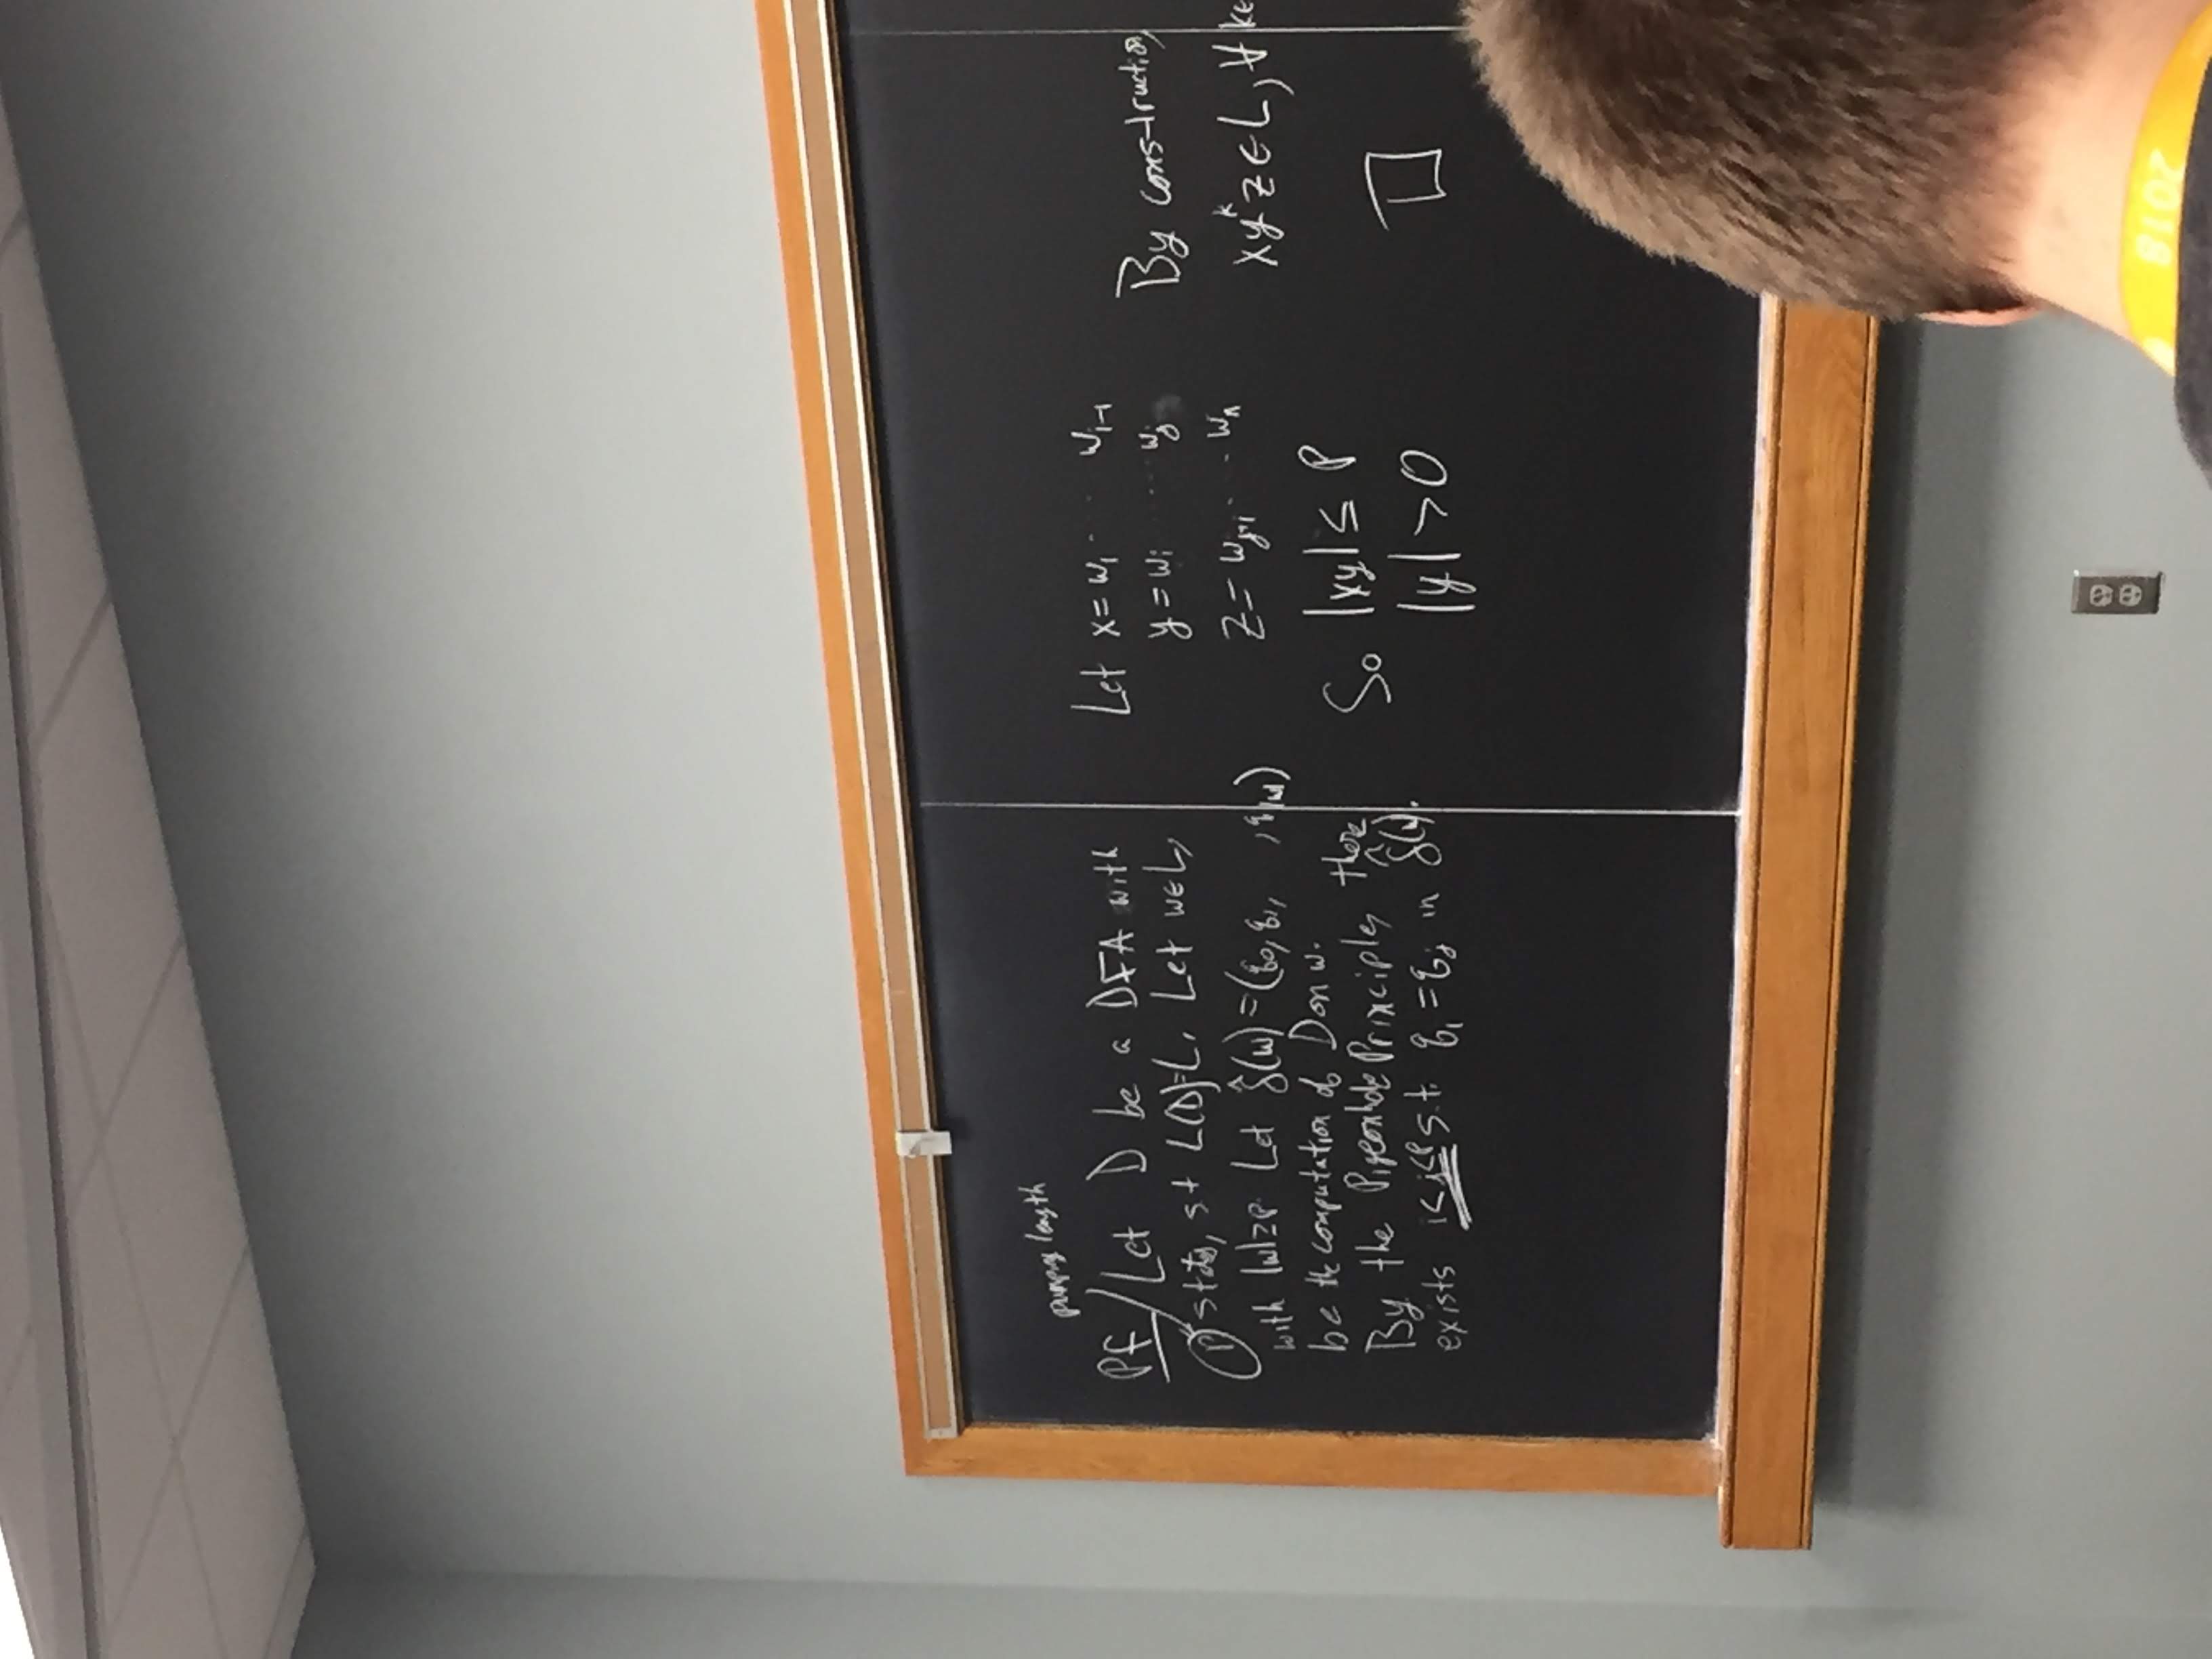 pumping length
Pf/ Let D be a DFA with
p states, st L(D)=L. Let w∈L,
with |w|≥p. Let δ̂(w)=(q₀, q₁, , q|w|)
be the computation of D on w.
By the Pigeonhole Principle, there
exists i<j≤p s.t. qᵢ = qⱼ in δ̂(w).
Let x = w₁ ... wᵢ₋₁
y = wᵢ ... wⱼ
z = wⱼ₊₁ ... wₙ
So |xy| ≤ p
|y| > 0
By construction,
xyᵏz ∈ L, ∀ k∈
2018